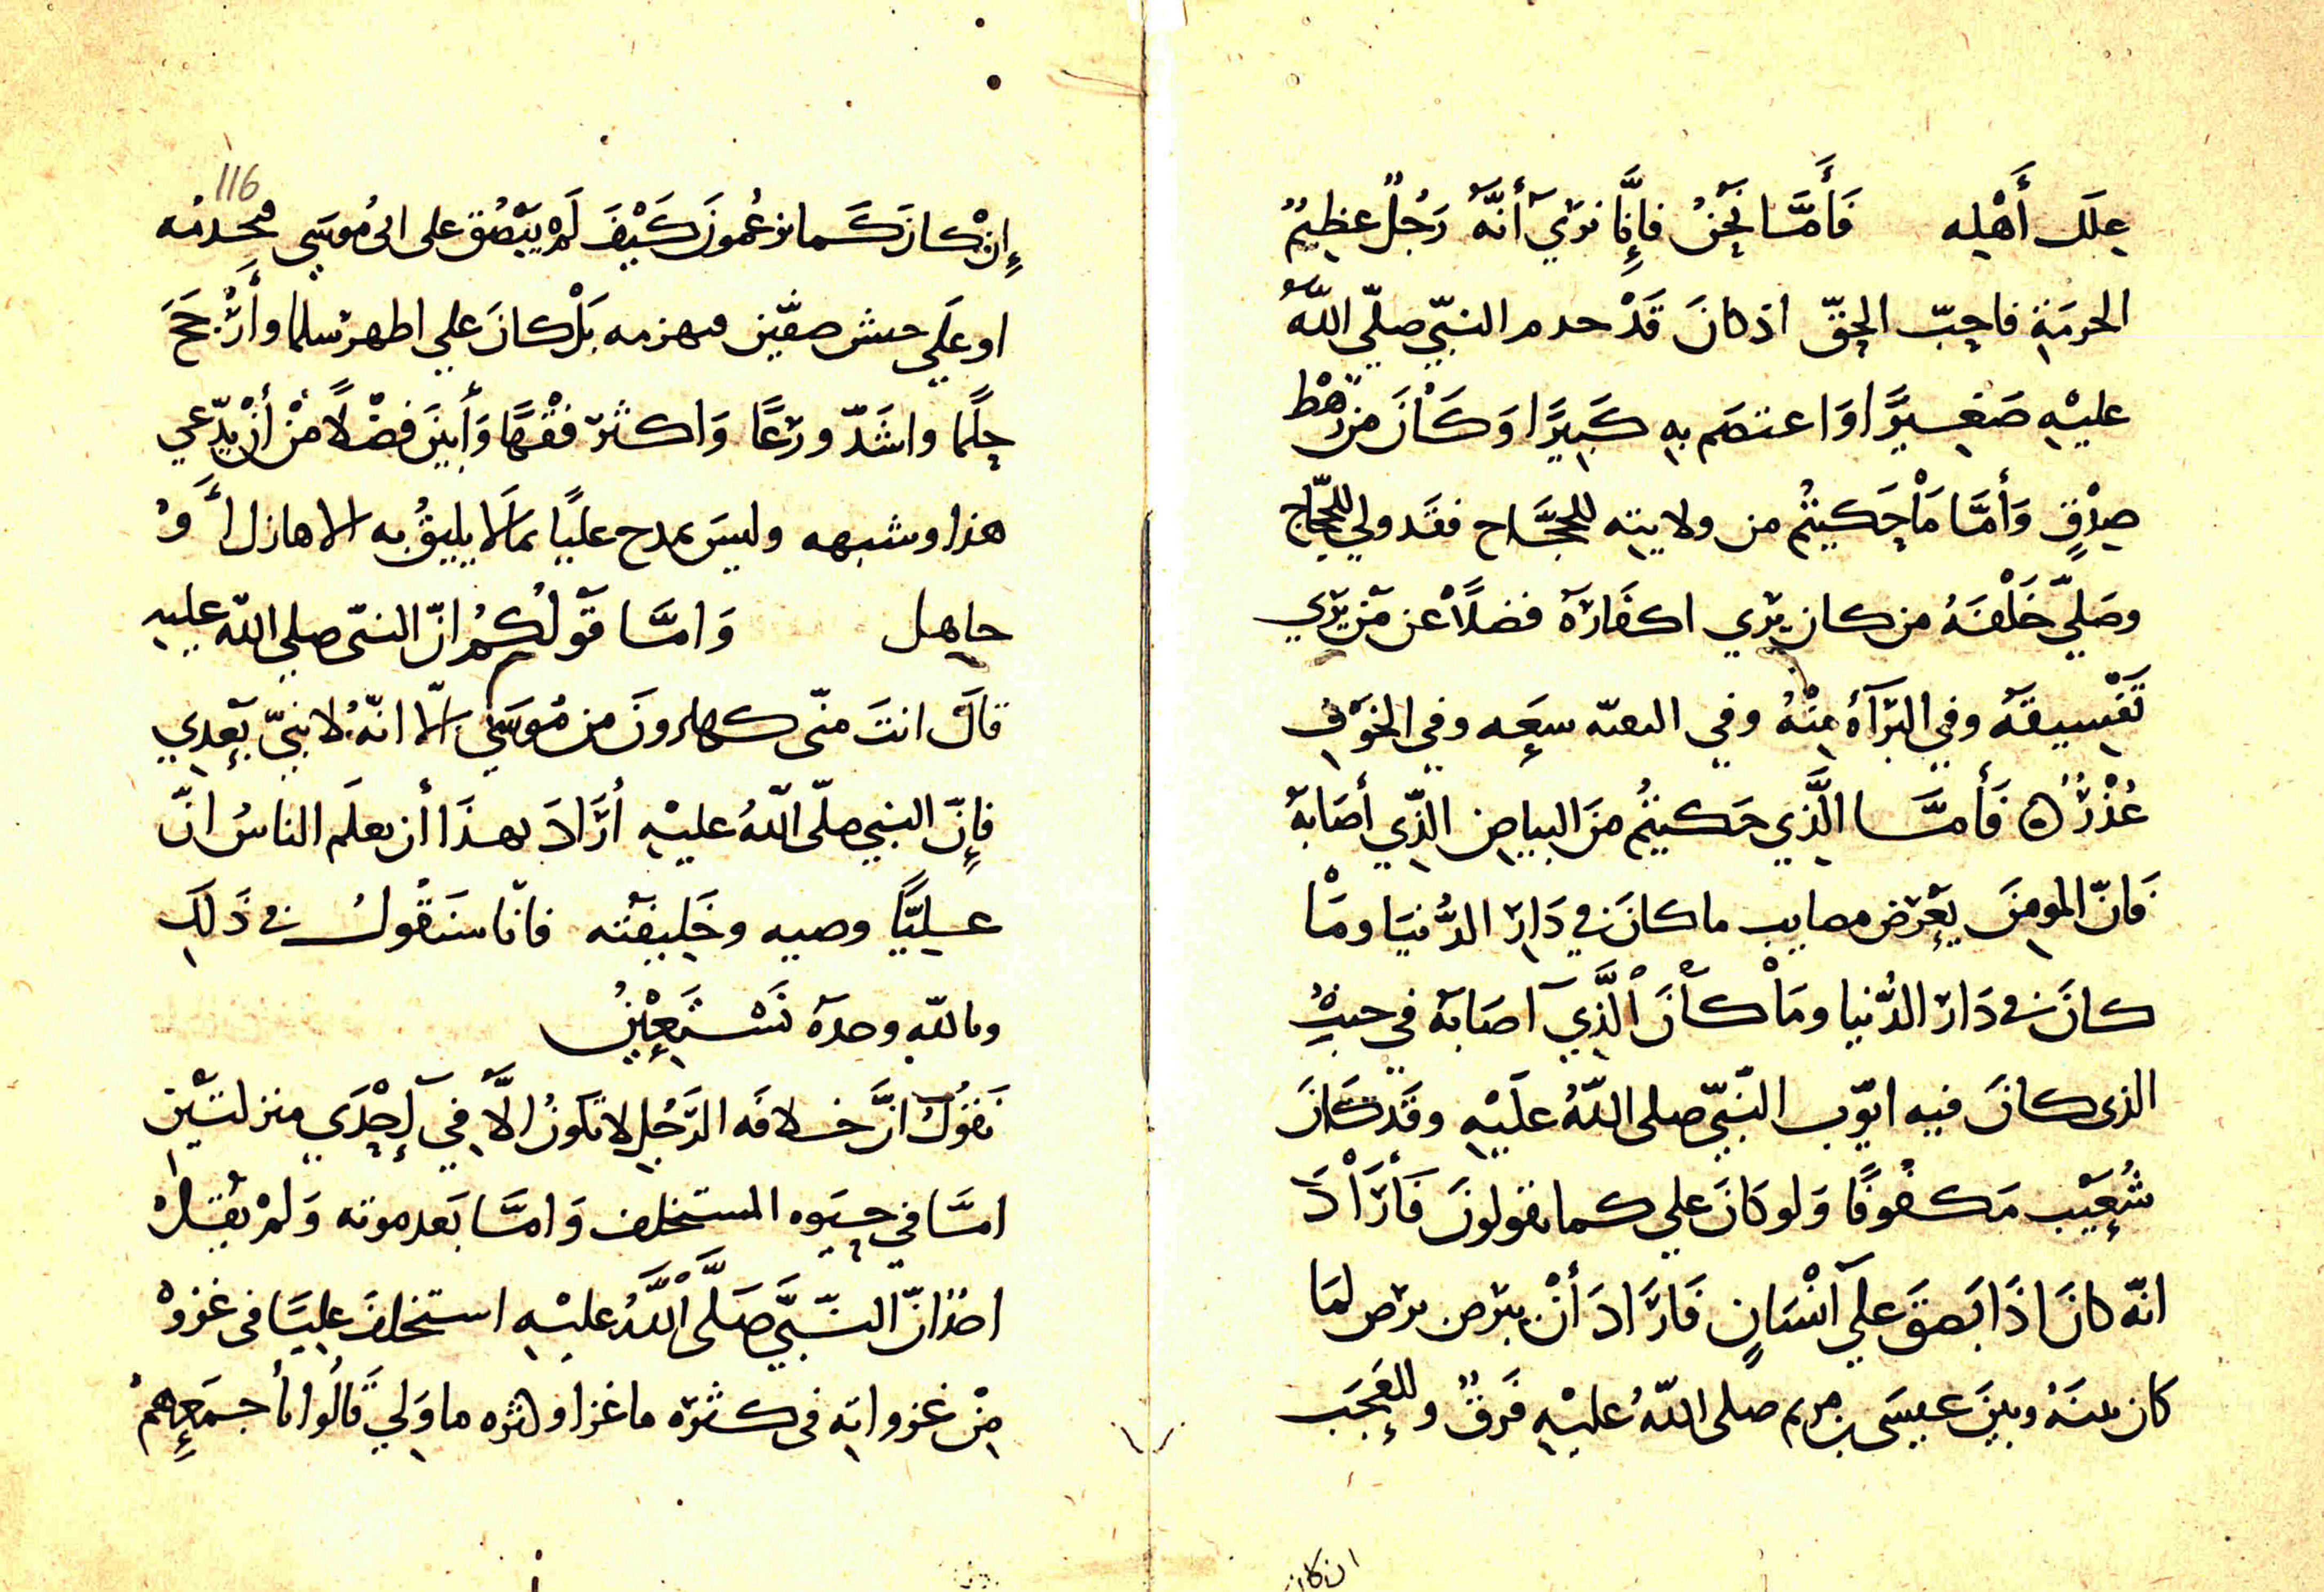 علل أَهْلِه فَأَمَّا نَحْنُ فَإِنَّا نَرَى أَنَّهُ رَجُلٌ عظِيمُ
الحرمَةِ فاحِبّ الحِقّ اذ كانَ قَدْ خدم النبّي صلّي اللّهُ
عليْهِ صَغِيرًا وَاعتصَم بهِ كَبِيرًا وَكَانَ من رَهْطِ
صِدْقٍ وَأَمَّا مَا حَكيتُم من ولايته للحجَّاج فقَد ولي للحجّاج
وصَلّي خَلْفَهُ من كان يرَي اكفَارَهُ فضلًا عن مَن يرَي
تَفْسِيقَهُ وفي البَرَآءَة مِنْهُ وفي التقيّه سعَه وفي الخوَفِ
عُذْرٌ ۞ فَأَمَّا الَّذِي حَكيتُم منَ البياضِ الّذِي أصَابهُ
فَانّ المومِنَ يعرَض مصايب ما كانَ في دَارِ الدُّنيَا ومَا
كانَ في دَار الدُّنيا ومَا كَانَ الَّذِيَ اصَابهُ في جنبِ
الذى كانَ فيه ايّوب النّبّي صلى اللّهُ علَيْهِ وقَد كَانَ
شُعَيْب مَكفُوفًا وَلو كَانَ علي كما تقولونَ فَأَرَادَ
انّه كانَ اذَا بَصقَ علي اَنْسَانٍ فَارَادَ أنْ يبرَص برَص لمَا
كان بينَهُ وبينَ عيسَى بن مريم صلى اللّهُ عليْهِ فَرقٌ وللعَجَب
ان كان
116
إِنْ كانَ كَما تزعُمونَ كَيْفَ لَمْ يَبْصُق على ابى مُوسَي فيجذمُه
او علَي جيش صفّين فيهزمه بَلْ كانَ علي اطهر سلما وأَرْجَحَ
حِلمًا واشَدّ ورَعًا وَاكثر فقْهًا وَأَبينَ فضْلًا مْن أَنْ يدّعي
هذا وشبهه وليسَ يمدح عليًا بمَا لا يليقُ به الا هازل أَوْ
جاهل وَامَّا قَولُكُمُ انّ النبّى صلي اللّه عليه
قالَ انتَ منّى كهارونَ من مُوسَي الّا انّهُ لا نبيّ بَعِدِي
فإِنّ النبي صلّى اللّهُ عليْهِ أرَادَ بهذَا أن يعلَم الناسُ انّ
عليًّا وصيه وخَليفَته فانّا سنَقُولُ في ذَلِكَ
وباللّهِ وحدهَ نَسْتَعِيْنُ
نَقُوُلُ انَّ خلافَه الرَّجُلِ لا تكُونُ الَّا فِي إِحْدَي منزلتَيْنِ
امَّا في حيَوه المستخلف وَامَّا بَعد موته وَلمْ يقُتلْ
احدٌ انّ النّبَّي صَلَّى اللَّهُ عليْهِ استخلفَ عليًا فى غزوْ
مِنْ غزواتِه فى كثرَه ما غزا وكثره ما وَلي قَالُوا بأجمَعِهِمْ